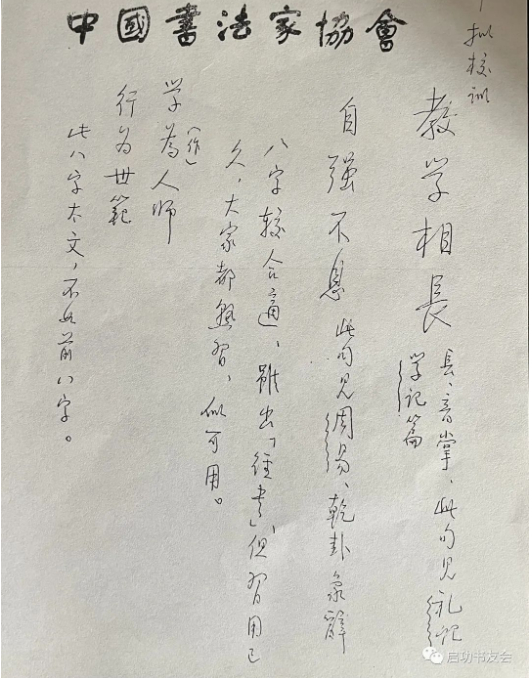 中國書法家協會
拟校训
教学相長 长、音掌、此句见礼记
学记篇
自强不息 此句见周易、乾卦象辭
八字较合適、雖出「經书」,但習用已
久,大家都熟習,似可用。
学為人师
(作)
行为世範
此八字太文,不如前八字。
启功书友会